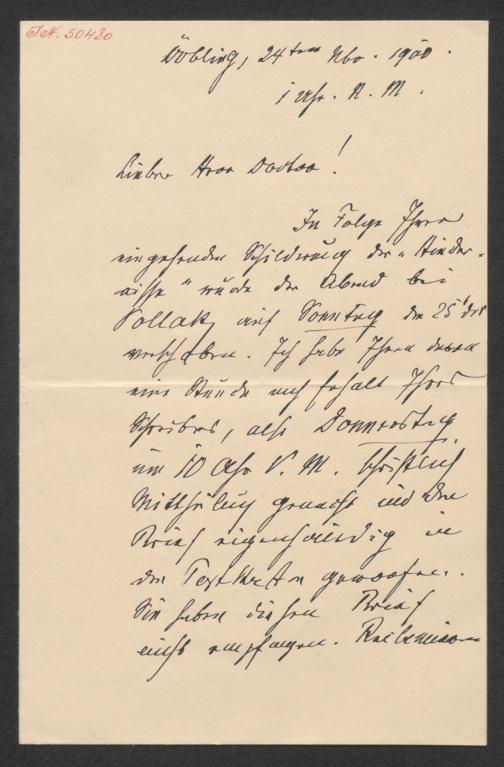 I.N. 50480
Döbling, 24ten Nov. 1900.
1 Uhr. N. M.
Lieber Herr Doctor!
In Folge Ihrer
eingehenden Schilderung der „Hinder-
nisse" wurde der Abend bei
Pollak auf Sonntag den 25t des
verschoben. Ich habe Ihnen davon
eine Stunde nach Erhalt Ihres
Schreibens, also Donnerstag
um 10 Uhr V. M. schriftlich
Mittheilung gemacht und den
Brief eigenhändig in
den Postkasten geworfen.
Sie haben diesen Brief
nicht empfangen. Reclamieren